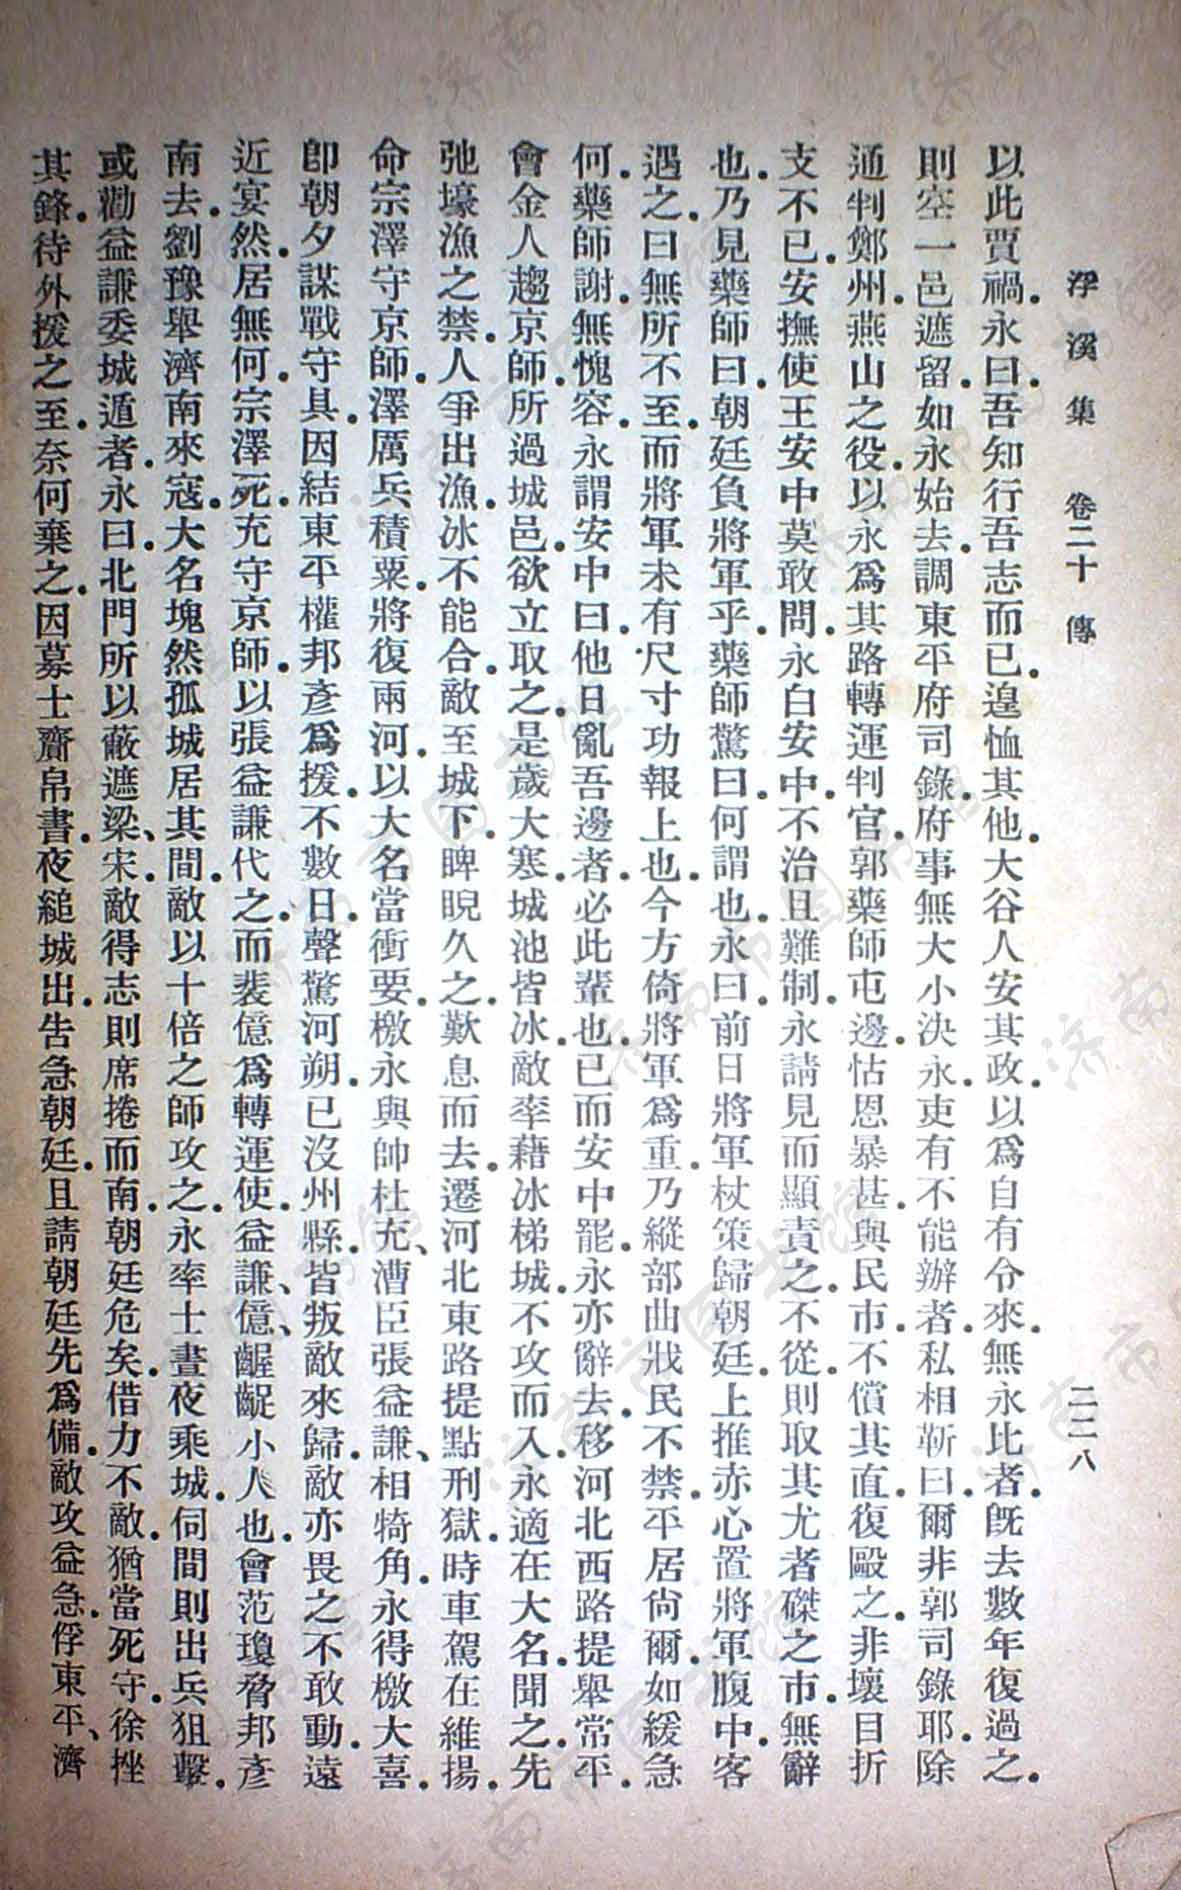 浮溪集　卷二十　傳　二二八
以此賈禍。永曰。吾知行吾志而已。遑恤其他。大谷人安其政。以爲自有令來。無永比者。既去數年。復過之。
則空一邑遮留。如永始去。調東平府司錄。府事無大小決永。吏有不能辦者。私相靳曰。爾非郭司錄耶。除
通判鄭州。燕山之役。以永爲其路轉運判官。郭藥師屯邊。怙恩暴甚。與民市不償其直。復毆之。非壞目折
支不已。安撫使王安中莫敢問。永白安中。不治且難制。永請見而顯責之。不從則取其尤者磔之市。無辭
也。乃見藥師曰。朝廷負將軍乎。藥師驚曰。何謂也。永曰。前日將軍杖策歸朝廷。上推赤心置將軍腹中。客
遇之。曰無所不至。而將軍未有尺寸功報上也。今方倚將軍爲重。乃縱部曲戕民不禁。平居尚爾。如緩急
何。藥師謝。無愧容。永謂安中曰。他日亂吾邊者。必此輩也。已而安中罷。永亦辭去。移河北西路提舉常平。
會金人趨京師。所過城邑。欲立取之。是歲大寒。城池皆冰。敵率藉冰梯城。不攻而入。永適在大名。聞之。先
弛壕漁之禁。人爭出漁。冰不能合。敵至城下。睥睨久之。歎息而去。遷河北東路提點刑獄。時車駕在維揚。
命宗澤守京師。澤厲兵積粟。將復兩河。以大名當衝要。檄永與帥杜充、漕臣張益謙、相犄角。永得檄大喜。
卽朝夕謀戰守具。因結東平權邦彥爲援。不數日。聲驚河朔。已沒州縣。皆叛敵來歸。敵亦畏之不敢動。遠
近宴然。居無何。宗澤死。充守京師。以張益謙代之。而裴億爲轉運使。益謙、億、齷齪小人也。會范瓊脅邦彥
南去。劉豫舉濟南來寇。大名塊然孤城居其間。敵以十倍之師攻之。永率士晝夜乘城。伺間則出兵狙擊。
或勸益謙委城遁者。永曰。北門所以蔽遮梁、宋。敵得志則席捲而南。朝廷危矣。借力不敵。猶當死守。徐挫
其鋒。待外援之至。奈何棄之。因募士齎帛書。夜縋城出。告急朝廷。且請朝廷先爲備。敵攻益急。俘東平、濟